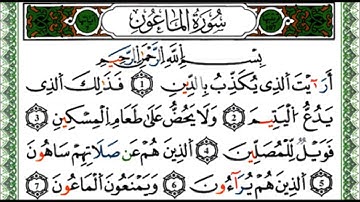 سُورَةُ الْمَاعُونَ
بِسْمِ اللَّهِ الرَّحْمَٰنِ الرَّحِيمِ
أَرَأَيْتَ الَّذِي يُكَذِّبُ بِالدِّينِ ١ فَذَٰلِكَ الَّذِي
يَدُعُّ الْيَتِيمَ ٢ وَلَا يَحُضُّ عَلَىٰ طَعَامِ الْمِسْكِينِ ٣
فَوَيْلٌ لِّلْمُصَلِّينَ ٤ الَّذِينَ هُمْ عَن صَلَاتِهِمْ سَاهُونَ
٥ الَّذِينَ هُمْ يُرَاءُونَ ٦ وَيَمْنَعُونَ الْمَاعُونَ ٧